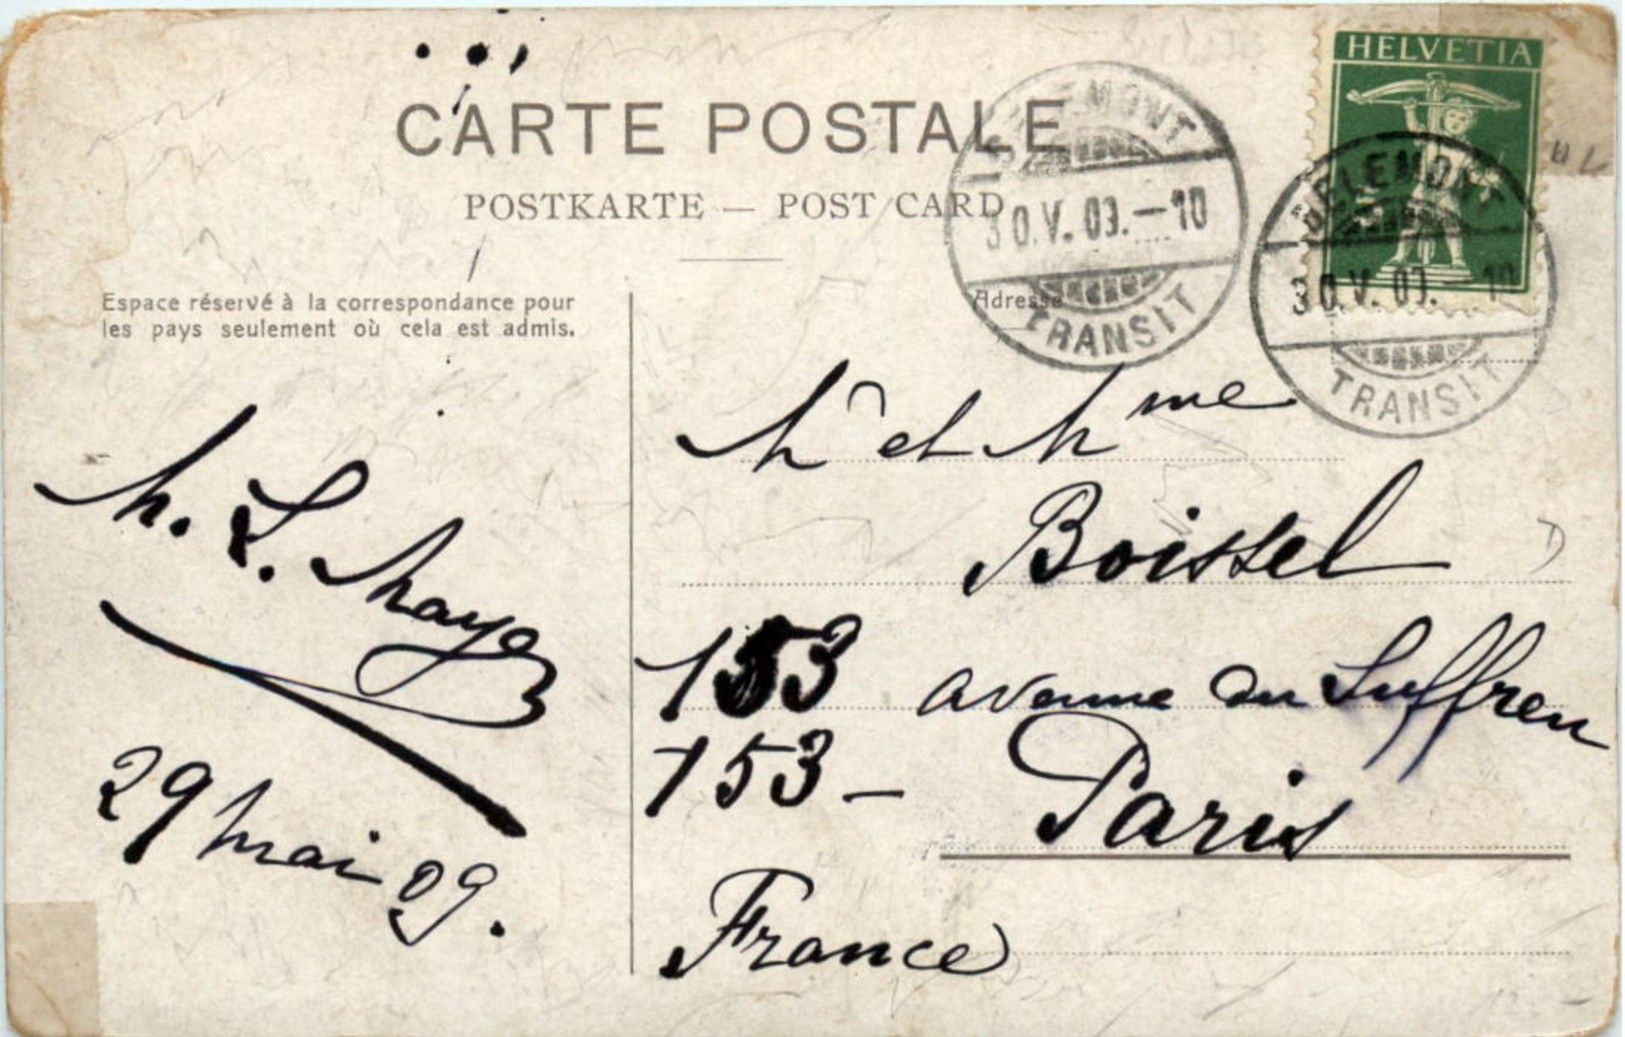 HELVETIA
CARTE POSTALE
POSTKARTE — POST CARD
DELEMONT
30.V.09.—10
TRANSIT
DELEMONT
30.V.09.—10
TRANSIT
Espace réservé à la correspondance pour
les pays seulement où cela est admis.
Adresse
Mr et Mme
Boissel
153 avenue du Suffren
153 —
Paris
France
29 mai 09.